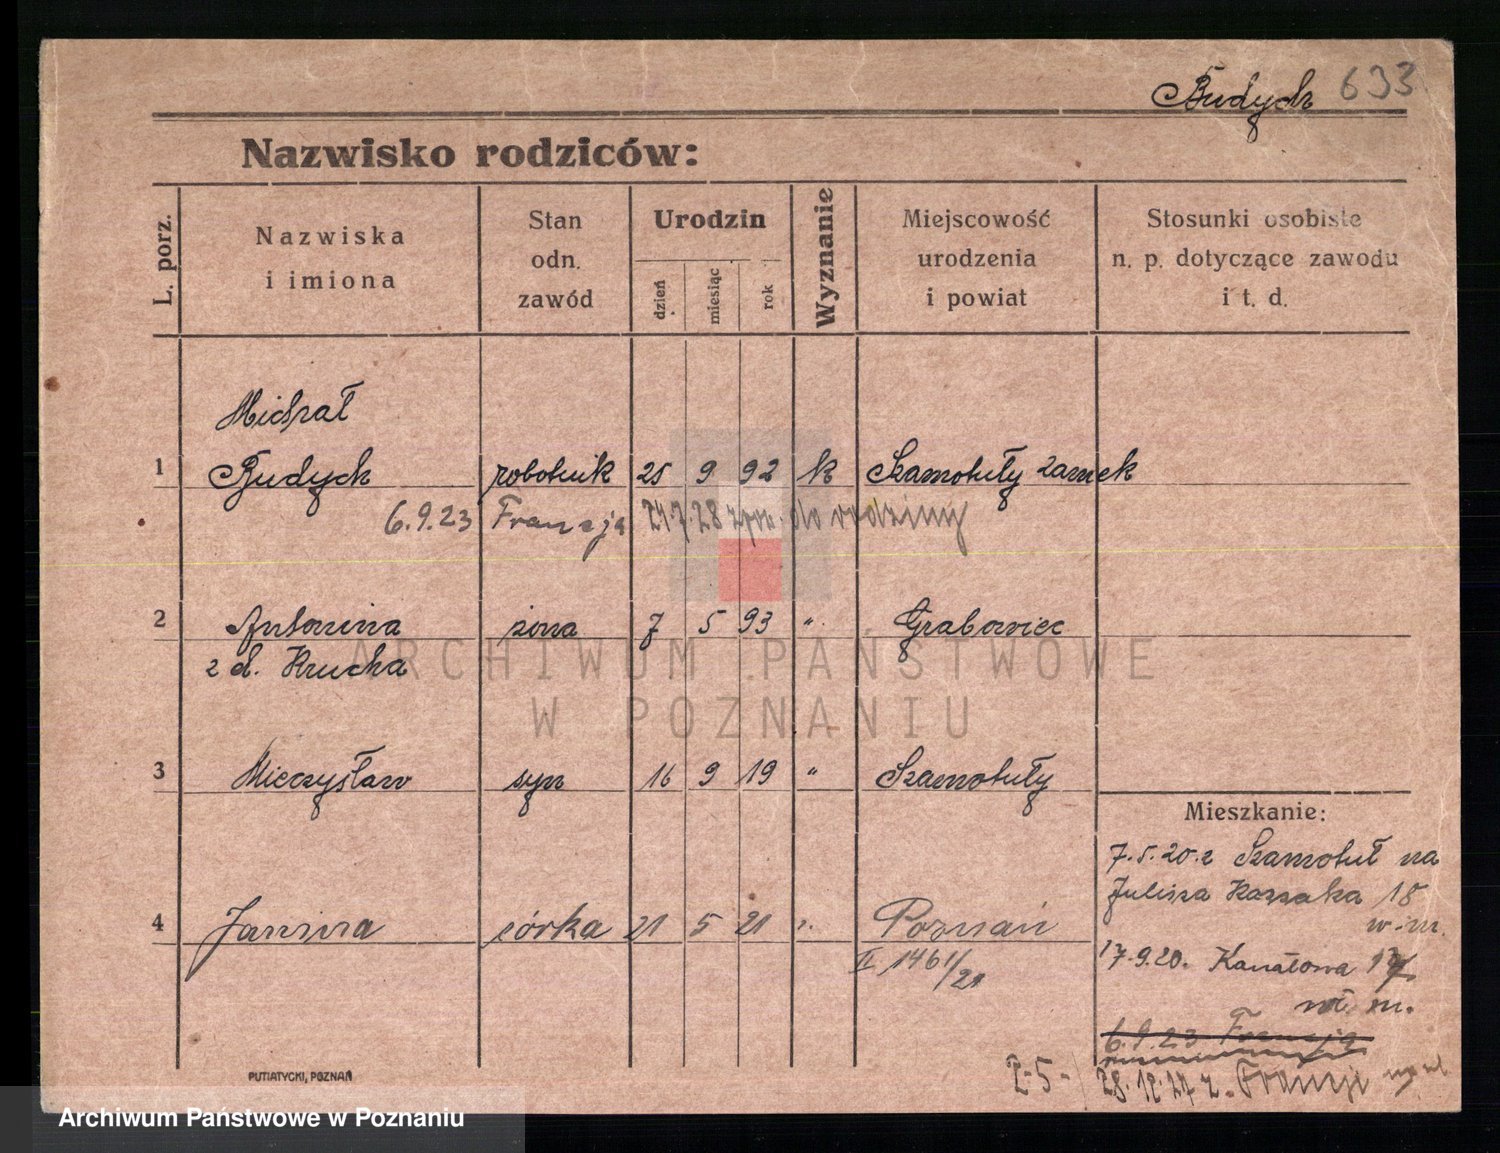 Budych 693
Nazwisko rodziców:
L. porz.
Nazwiska
i imiona
Stan
odn.
zawód
Urodzin
dzień
miesiąc
rok
Wyznanie
Miejscowość
urodzenia
i powiat
Stosunki osobiste
n. p. dotyczące zawodu
i t. d.
Michał
1 Budych robotnik 25 9 92 k Szamotuły zamek
6.9.23 Francja 24.7.28 do rodziny
2 Antonina żona 7 5 93 " Grabowiec
z d. Krucha
ARCHIWUM PAŃSTWOWE
W POZNANIU
3 Mieczysław syn 16 9 19 " Szamotuły
Mieszkanie:
7.5.20. z Szamotuł na
Juliusza Kossaka 18
w. m.
4 Janina córka 21 5 21 Poznań
II 1461/21
17.9.20. Kanałowa 17
w m.
6.9.23 Francja
28.12.27 z Francji
PUTIATYCKI, POZNAŃ
Archiwum Państwowe w Poznaniu